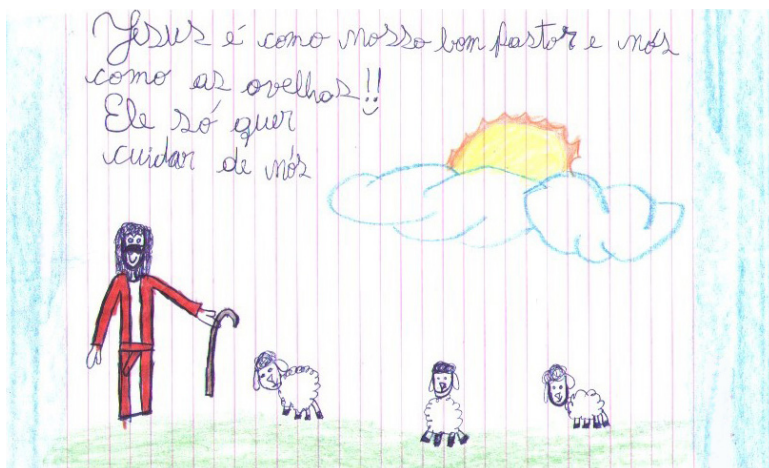 Jesus é como nosso bom pastor e nós
como as ovelhas!!
Ele só quer
cuidar de nós